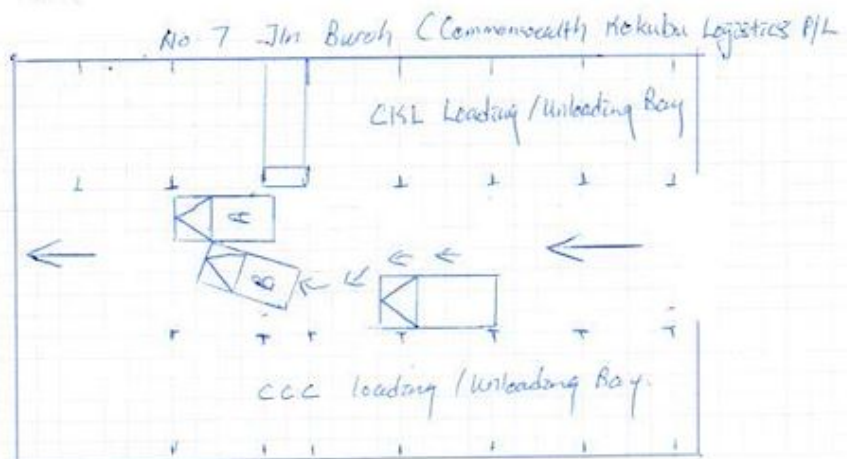 No 7 Jln Buroh (Commonwealth Kokubu Logistics P/L
CKL Loading/Unloading Bay
A
B
CCC loading/Unloading Bay.